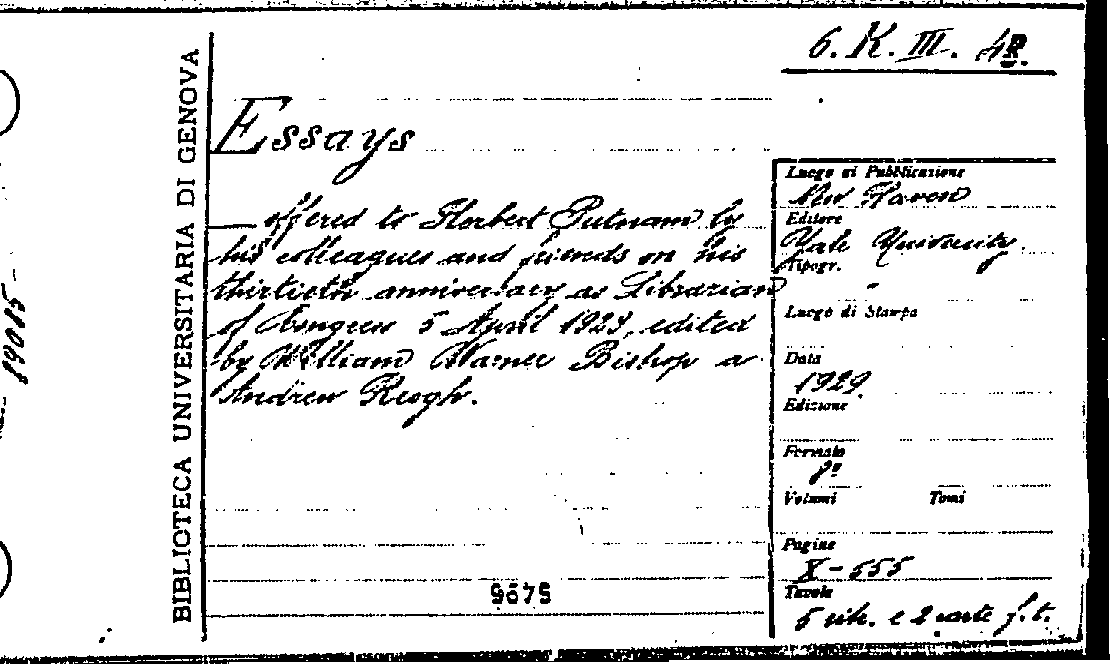 6. K. III. 42.
BIBLIOTECA UNIVERSITARIA DI GENOVA
Essays
offered to Herbert Putnam by
his colleagues and friends on his
thirtieth anniversary as Librarian
of Congress 5 April 1929, edited
by William Warner Bishop a
Andrew Keogh.
Luogo di Pubblicazione
New Haven
Editore
Yale University.
Tipogr.
"
Luogo di Stampa
Data
1929
Edizione
Formato
8º
Volumi Tomi
Pagine
X-555
Tavole
5 rit. e 2 carte f.t.
89015